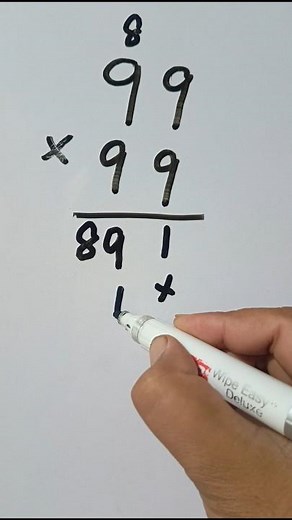 8
99
× 99
891
1 ×
Wipe Easy
Deluxe